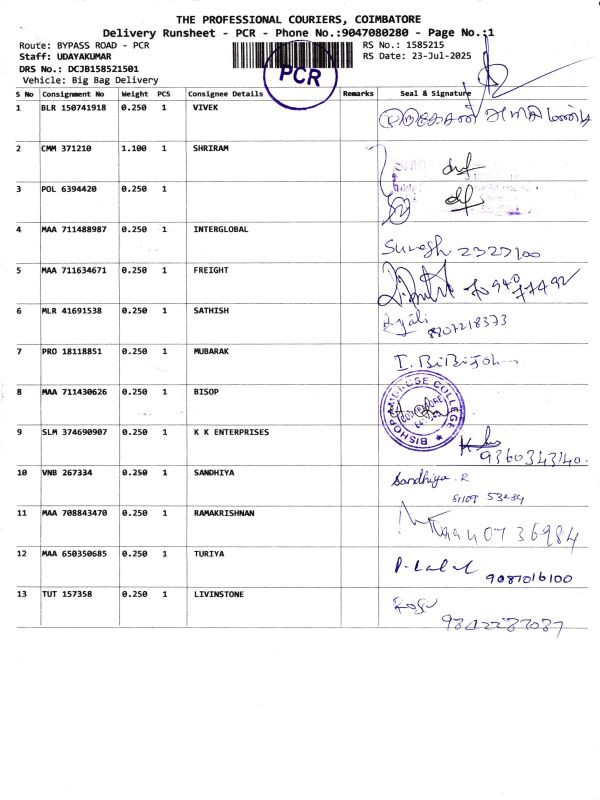 THE PROFESSIONAL COURIERS, COIMBATORE
Delivery Runsheet - PCR - Phone No.:9047080280 - Page No.:1
Route: BYPASS ROAD - PCR
RS No.: 1585215
Staff: UDAYAKUMAR
RS Date: 23-Jul-2025
DRS No.: DCJB158521501
Vehicle: Big Bag Delivery
PCR
S No Consignment No Weight PCS Consignee Details Remarks Seal & Signature
1 BLR 150741918 0.250 1 VIVEK
2 CMM 371210 1.100 1 SHRIRAM
3 POL 6394420 0.250 1
4 MAA 711488987 0.250 1 INTERGLOBAL
Suresh
5 MAA 711634671 0.250 1 FREIGHT
6 MLR 41691538 0.250 1 SATHISH
8907218373
7 PRO 18118851 0.250 1 MUBARAK
8 MAA 711430626 0.250 1 BISOP
BISHOP AMBROSE COLLEGE
9 SLM 374690907 0.250 1 K K ENTERPRISES
9360343140.
10 VNB 267334 0.250 1 SANDHIYA
Sandhiya. R
11 MAA 708843470 0.250 1 RAMAKRISHNAN
12 MAA 650350685 0.250 1 TURIYA
9087016100
13 TUT 157358 0.250 1 LIVINSTONE